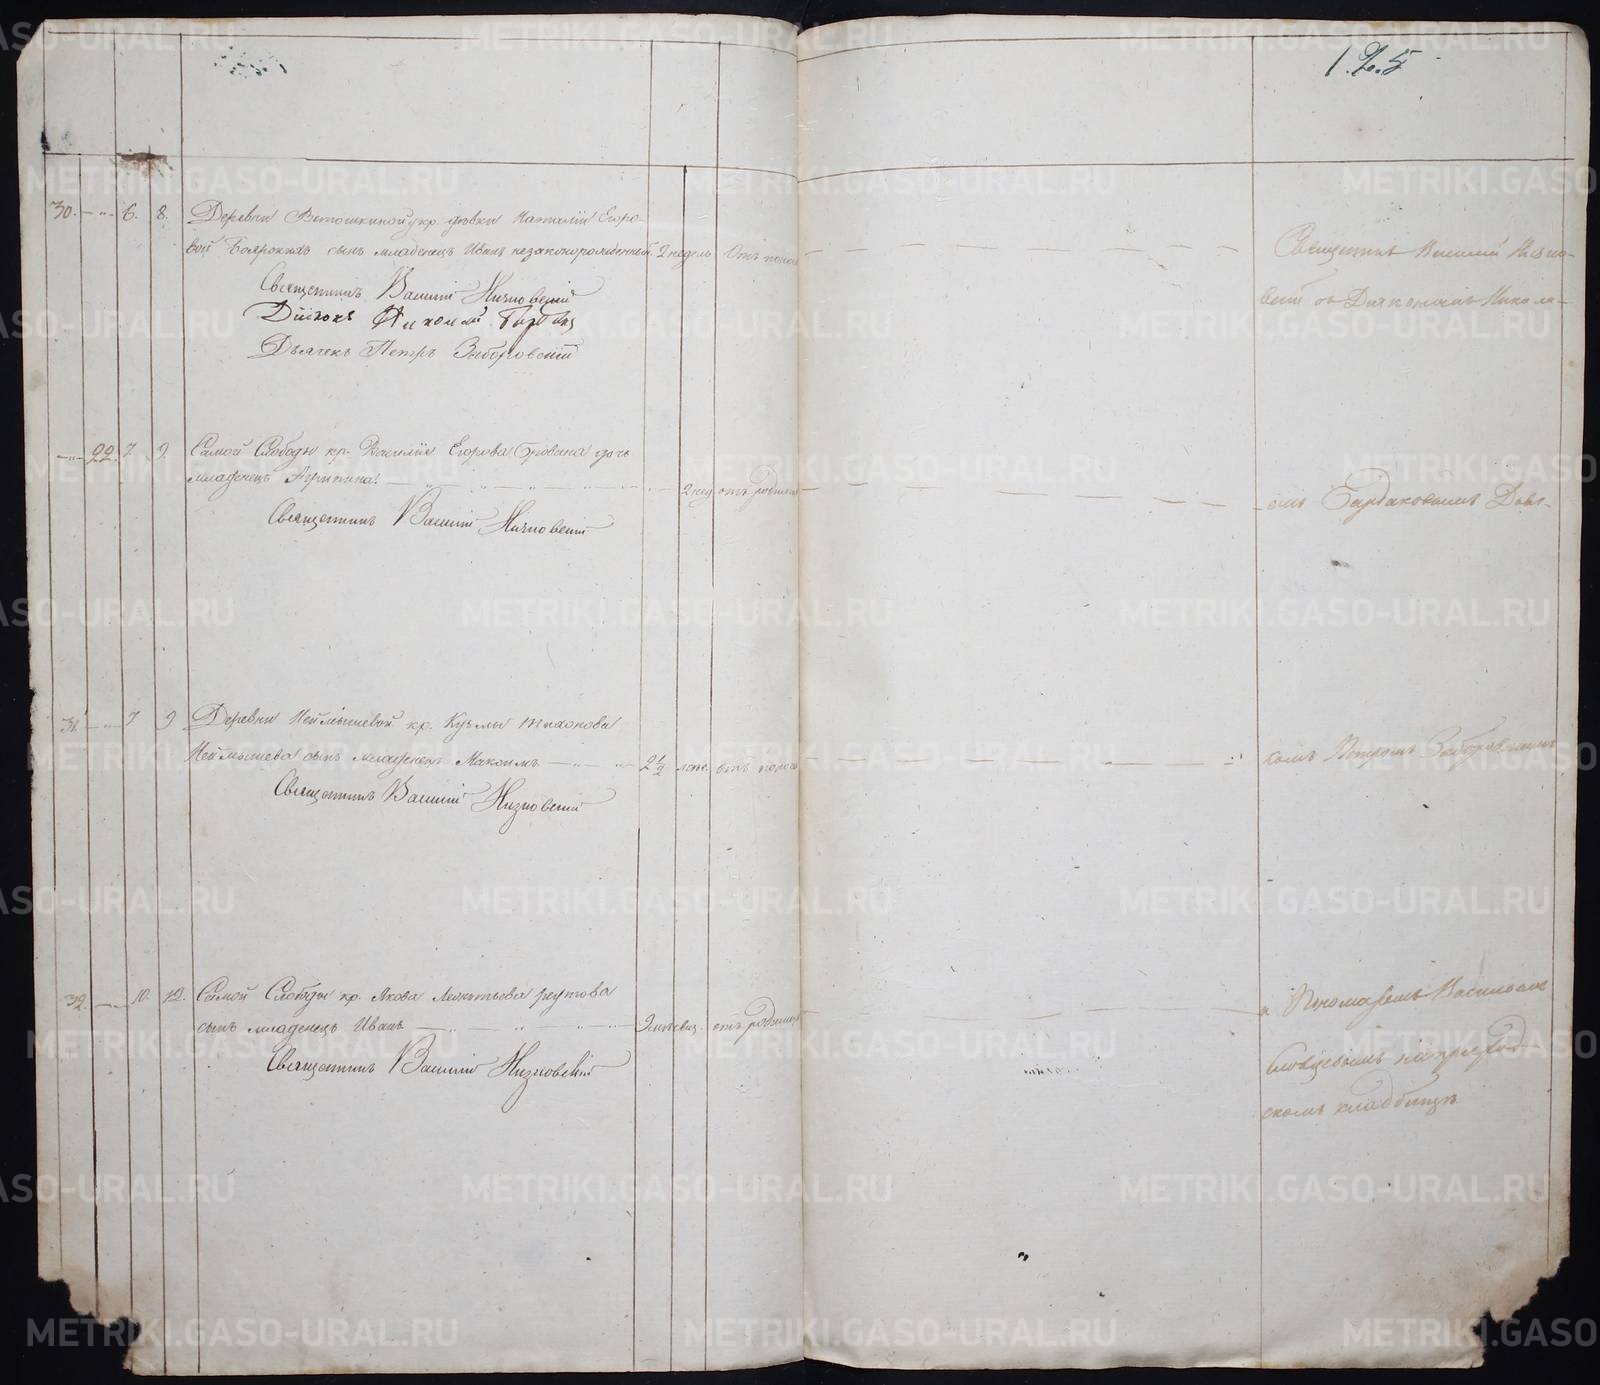 125
30. — " — 6. 8. Деревни Ветошкиной кр. девки Наталіи Егоро-
вой Боярскихъ сынъ младенецъ Иванъ незаконорожденный. 2 недель Отъ поноса
Священникъ Василий Низковский
Діаконъ Николай
Дьячекъ Петръ Заборовский
Священникъ Василий Низко-
вский съ Діакономъ Никола-
— " — 22. 7. 9. Самой Слободы кр. Василія Егорова дочь
младенецъ Агрипина. 2 нед. отъ родимца
Священникъ Василий Низковский
емъ Бардаковымъ Дьяч-
31. — " — 7 9 Деревни Неймышевой кр. Кузьмы Тихонова
Неймышева сынъ младенецъ Максимъ 2 1/2 отъ поноса
Священникъ Василий Низковский
комъ Петромъ Заборовскимъ
32. — " — 10. 12. Самой Слободы кр. Якова Леонтьева Реутова
сынъ младенецъ Иванъ отъ родимца
Священникъ Василий Низковский
и Пономаремъ Василіемъ
Словцовымъ на приход-
скомъ кладбищѣ
METRIKI.GASO-URAL.RU